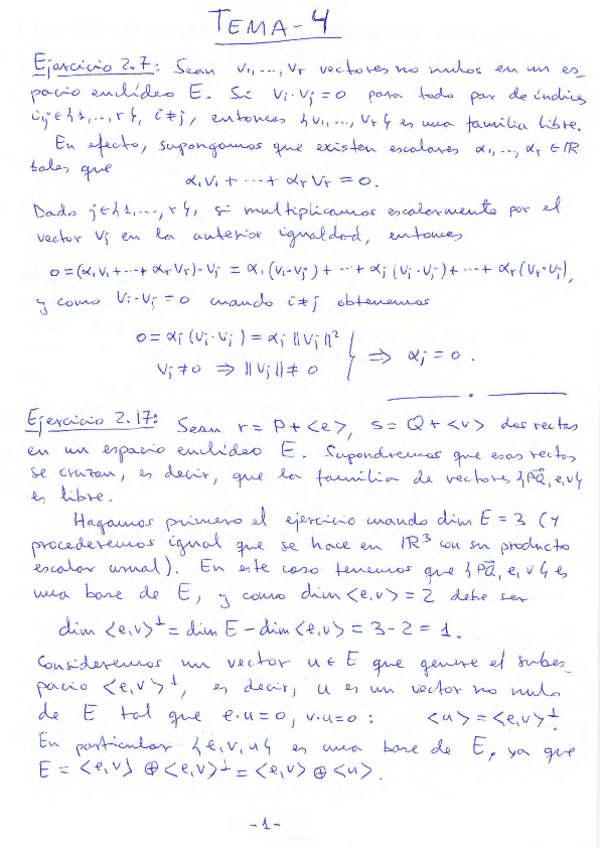 TEMA-4
Ejercicio 2.7: Sean v₁,..., vᵣ vectores no nulos en un es-
pacio euclídeo E. Si vᵢ·vⱼ=0 para todo par de índices
i,j∈{1,...,r}, i≠j, entonces {v₁,..., vᵣ} es una familia libre.
En efecto, supongamos que existen escalares α₁,..., αᵣ ∈ ℝ
tales que
α₁v₁ + ··· + αᵣvᵣ = 0.
Dado j∈{1,...,r}, si multiplicamos escalarmente por el
vector vⱼ en la anterior igualdad, entonces
0=(α₁v₁+···+αᵣvᵣ)·vⱼ = α₁(v₁·vⱼ)+···+αⱼ(vⱼ·vⱼ)+···+αᵣ(vᵣ·vⱼ),
y como vᵢ·vⱼ = 0 cuando i≠j obtenemos
0 = αⱼ(vⱼ·vⱼ) = αⱼ‖vⱼ‖²
vⱼ≠0 ⇒ ‖vⱼ‖≠0 } ⇒ αⱼ = 0.
Ejercicio 2.17: Sean r = P+<e>, s = Q+<v> dos rectas
en un espacio euclídeo E. Supondremos que esas rectas
se cruzan, es decir, que la familia de vectores {PQ⃗, e, v}
es libre.
Hagamos primero el ejercicio cuando dim E = 3 (y
procederemos igual que se hace en ℝ³ con su producto
escalar usual). En este caso tenemos que {PQ⃗, e, v} es
una base de E, y como dim<e,v> = 2 debe ser
dim <e,v>⊥ = dim E - dim<e,v> = 3-2 = 1.
Consideremos un vector u∈E que genere el subes-
pacio <e,v>⊥, es decir, u es un vector no nulo
de E tal que e·u=0, v·u=0 : <u> = <e,v>⊥.
En particular {e,v,u} es una base de E, ya que
E = <e,v> ⊕ <e,v>⊥ = <e,v> ⊕ <u>.
-1-